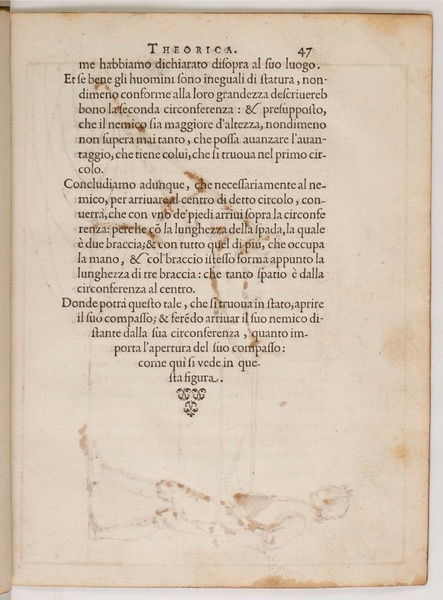 THEORICA. 47
me habbiamo dichiarato disopra al suo luogo.
Et se bene gli huomini sono ineguali di statura, non-
dimeno conforme alla loro grandezza descriuereb
bono la seconda circonferenza: & presupposto,
che il nemico sia maggiore d'altezza, nondimeno
non supera mai tanto, che possa auanzare l'auan-
taggio, che tiene colui, che si truoua nel primo cir-
colo.
Concludiamo adunque, che necessariamente al ne-
mico, per arriuare al centro di detto circolo, con-
uerrà, che con vno de'piedi arriui sopra la circonfe
renza: perche cō la lunghezza della spada, la quale
è due braccia; & con tutto quel di più, che occupa
la mano, & col braccio istesso forma appunto la
lunghezza di tre braccia: che tanto spatio è dalla
circonferenza al centro.
Donde potrà questo tale, che si truoua in stato, aprire
il suo compasso; & ferēdo arriuar il suo nemico di-
stante dalla sua circonferenza, quanto im-
porta l'apertura del suo compasso:
come quì si vede in que-
sta figura.